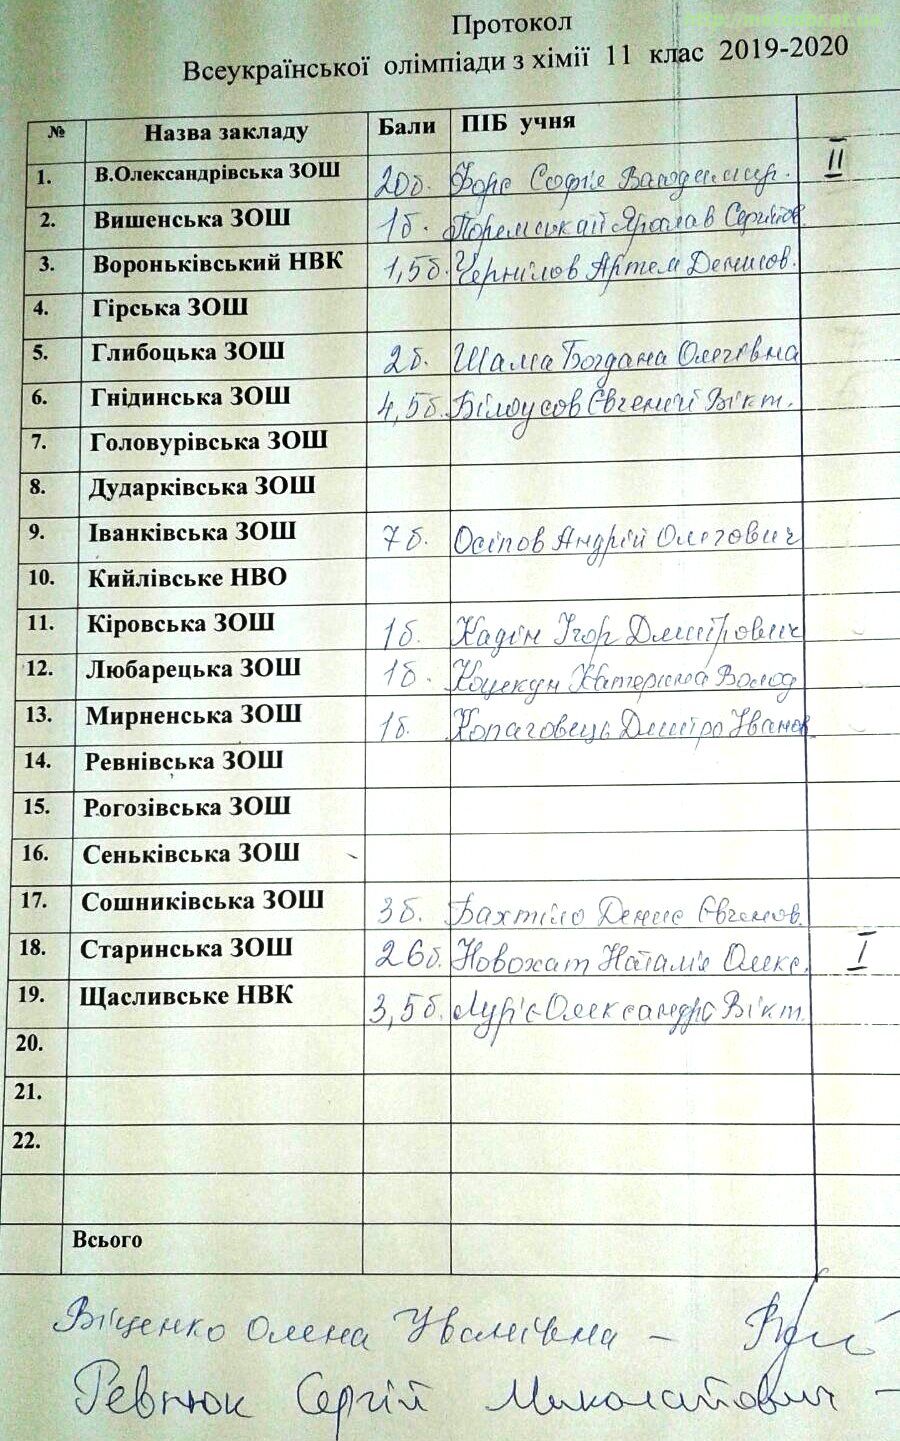 Протокол
Всеукраїнської олімпіади з хімії 11 клас 2019-2020
№ Назва закладу Бали ПІБ учня
1. В.Олександрівська ЗОШ 20б. Софія II
2. Вишенська ЗОШ 1б. Ярослав
3. Вороньківський НВК 1,5б. Чернілов Артем Денисов.
4. Гірська ЗОШ
5. Глибоцька ЗОШ 2б. Шама Богдана Олегівна
6. Гнідинська ЗОШ 4,5б. Білоусов Євгеній Вікт.
7. Головурівська ЗОШ
8. Дударківська ЗОШ
9. Іванківська ЗОШ 7б. Осіпов Андрій Олегович
10. Кийлівське НВО
11. Кіровська ЗОШ 1б. Кадін Ігор Дмитрович
12. Любарецька ЗОШ 1б. Катерина Волод
13. Мирненська ЗОШ 1б. Дмитро Іванов
14. Ревнівська ЗОШ
15. Рогозівська ЗОШ
16. Сеньківська ЗОШ
17. Сошниківська ЗОШ 3б. Бахтіло Денис Євгенов.
18. Старинська ЗОШ 26б. Новохат Наталія Олекс. I
19. Щасливське НВК 3,5б. Лур'є Олександра Вікт.
20.
21.
22.
Всього
Віценко Олена Іванівна –
Ревнюк Сергій Миколайович –